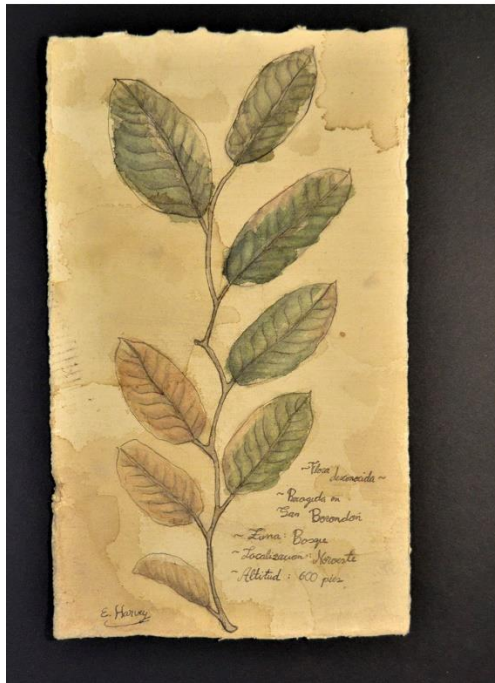 ~Flora
desconocida~
~Recogida en
San Borondón
~ Zona: Bosque
~Localización: Noroeste
~Altitud: 600 pies.
E. Harvey